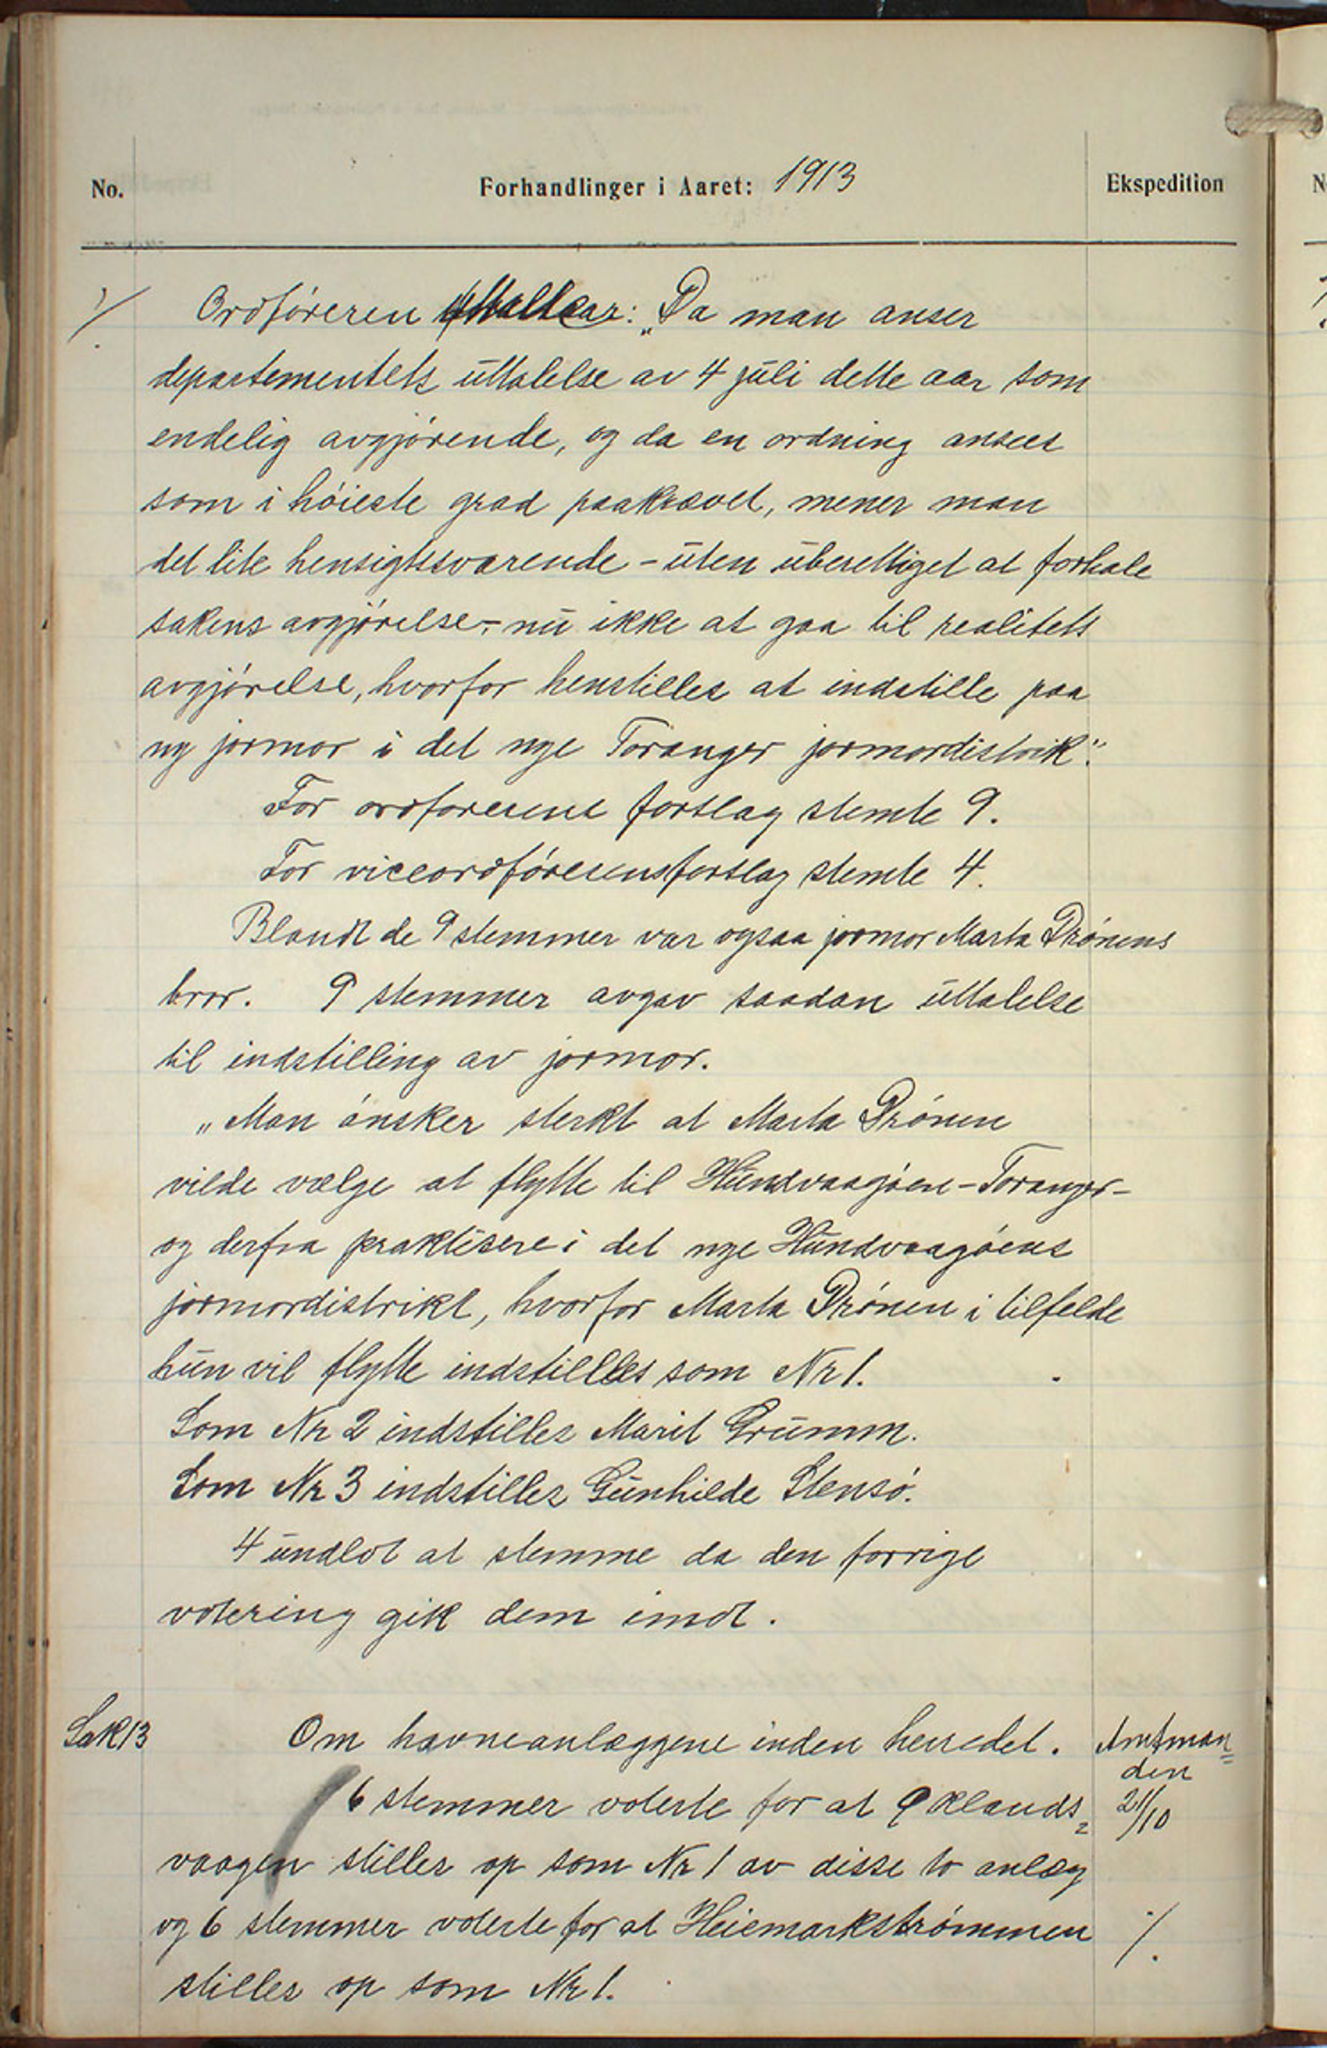 No.
Forhandlinger i Aaret: 1913
Ekspedition
Ordføreren uttaler: „Da man anser
departementets uttalelse av 4 juli dette aar som
endelig avgjørende, og da en ordning ansees
som i høieste grad paakrævet, mener man
det lite hensigtssvarende - uten uberettiget at forhale
sakens avgjørelse - nu ikke at gaa til realitets
avgjørelse, hvorfor henstilles at indstille paa
ny jormor i det nye Toranger jormordistrik".
For ordførerens forslag stemte 9.
For viceordførerens forslag stemte 4.
Blandt de 9 stemmer var ogsaa jormor Marta Drønens
bror. 9 stemmer avgav saadan uttalelse
til indstilling av jormor.
„Man ønsker sterkt at Marta Drønen
vilde vælge at flytte til Hundvaagøen - Toranger -
og derfra praktisere i det nye Hundvaagøens
jormordistrikt, hvorfor Marta Drønen i tilfelde
hun vil flytte indstilles som Nr 1.
Som Nr 2 indstilles Marit Grumm.
Som Nr 3 indstilles Gunhilde Stensø.
4 undlot at stemme da den forrige
votering gik dem imot.
Sak 13
Om havneanlæggene inden herredet.
Amtman=
den
21/10
6 stemmer voterte for at Øklands=
vaagen stilles op som Nr 1 av disse to anlæg
og 6 stemmer voterte for at Heiemarkstrømmen
stilles op som Nr 1.